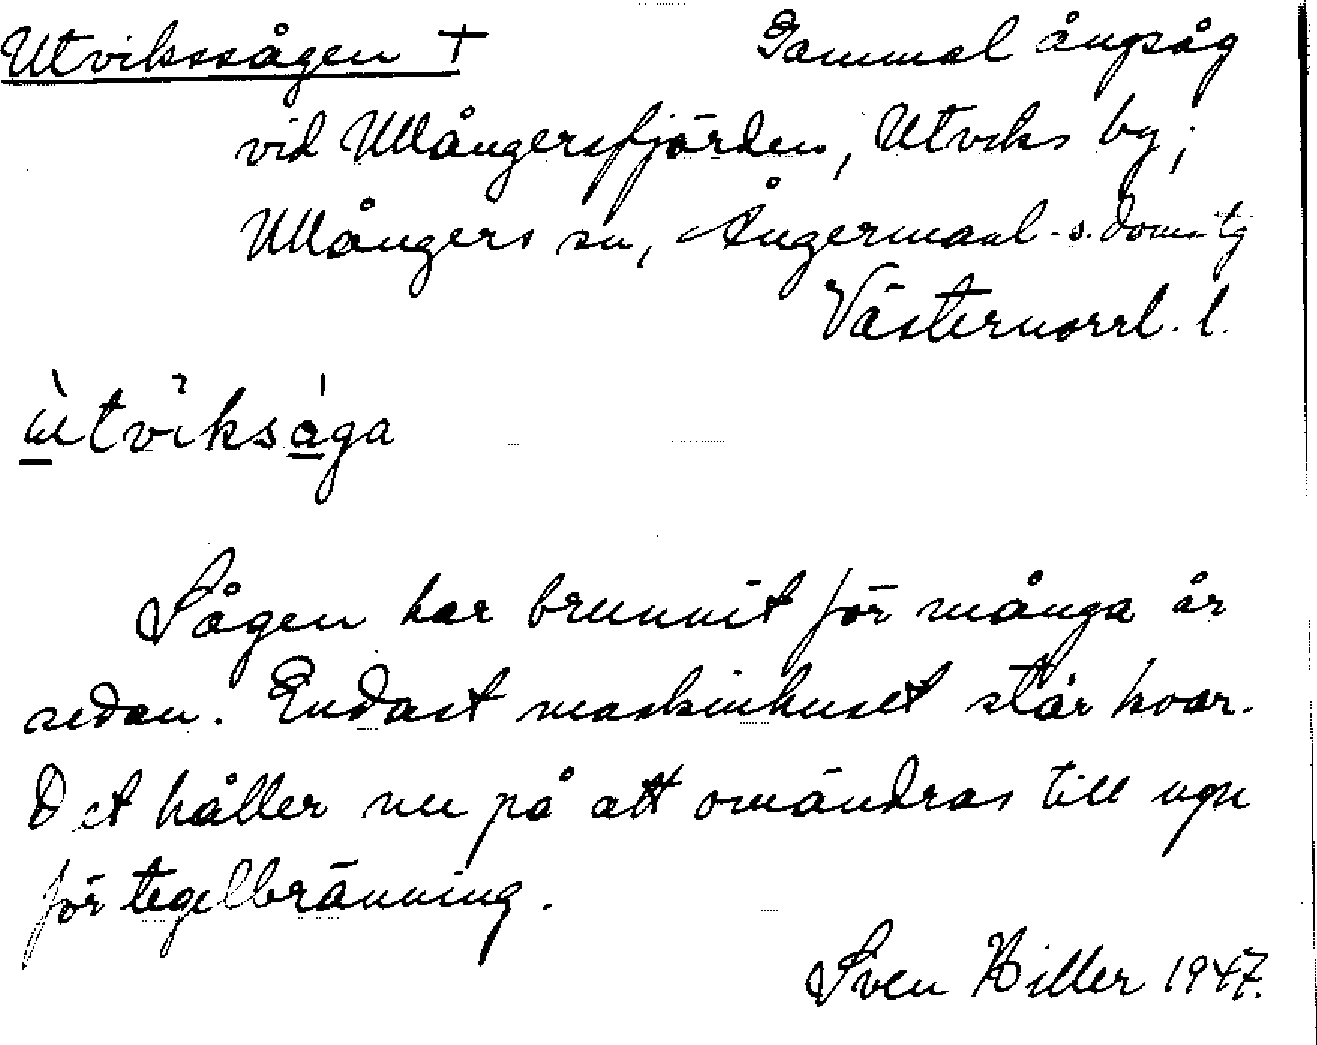 Utvikssågen + Gammal ångsåg
vid Ullångersfjärden, Utviks by,
Ullångers sn, Ångermanl. s. doms. tg
Västernorrl. l.
ùtviksága
Sågen har brunnit för många år
sedan. Endast maskinhuset står kvar.
Det håller nu på att omändras till ugn
för tegelbränning.
Sven Hiller 1947.